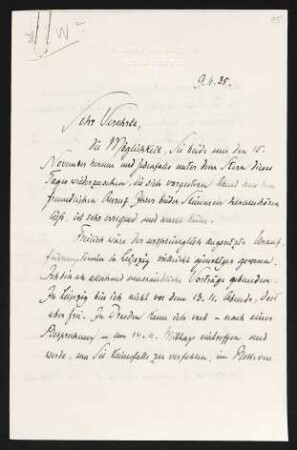 9.4.35.
Sehr Verehrte,
die Möglichkeit, Sie beide um den 15.
November herum und jedenfalls unter dem Stern dieses
Tages wiederzusehen, die sich vorgestern
freundlichen Anruf Ihrer beiden Stimmen heraushören
ließ, ist sehr erregend und
Freilich wäre der ursprünglich angesetzte
in Leipzig vielleicht günstiger gewesen.
Ich bin an allerhand umständliche Vorträge gebunden.
In Leipzig bin ich nicht vor dem 13. 11. abends, dort
aber frei. In Dresden kann ich erst – nach einer
Besprechung – am 14. 11. Mittags eintreffen und
werde, um Sie keinesfalls zu verfehlen, im